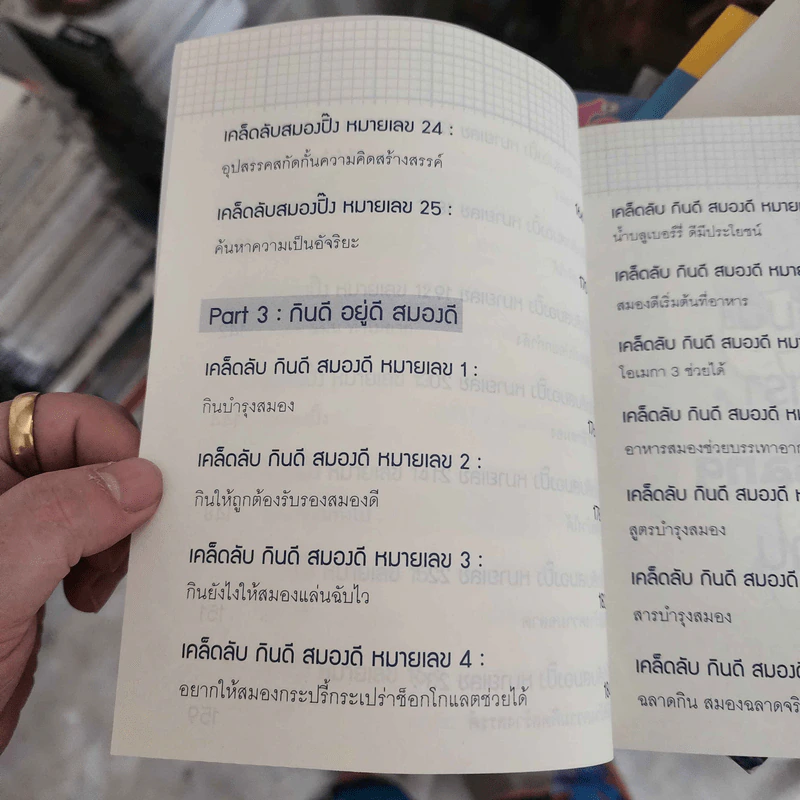 เคล็ดลับสมองปิ๊ง หมายเลข 24 :
อุปสรรคสกัดกั้นความคิดสร้างสรรค์
เคล็ดลับสมองปิ๊ง หมายเลข 25 :
ค้นหาความเป็นอัจริยะ
Part 3 : กินดี อยู่ดี สมองดี
เคล็ดลับ กินดี สมองดี หมายเลข 1 :
กินบำรุงสมอง
เคล็ดลับ กินดี สมองดี หมายเลข 2 :
กินให้ถูกต้องรับรองสมองดี
เคล็ดลับ กินดี สมองดี หมายเลข 3 :
กินยังไงให้สมองแล่นฉับไว
เคล็ดลับ กินดี สมองดี หมายเลข 4 :
อยากให้สมองกระปรี้กระเปร่าช็อกโกแลตช่วยได้
เคล็ดลับ กินดี สมองดี
น้ำบลูเบอร์รี่ ดีมีประโยชน์
เคล็ดลับ กินดี สมองดี
สมองดีเริ่มต้นที่อาหาร
เคล็ดลับ กินดี สมองดี
โอเมกา 3 ช่วยได้
เคล็ดลับ กินดี สมองดี
อาหารสมองช่วยบรรเทา
เคล็ดลับ กินดี สมองดี
สูตรบำรุงสมอง
เคล็ดลับ กินดี สมองดี
สารบำรุงสมอง
เคล็ดลับ กินดี
ฉลาดกิน สมองฉลาด